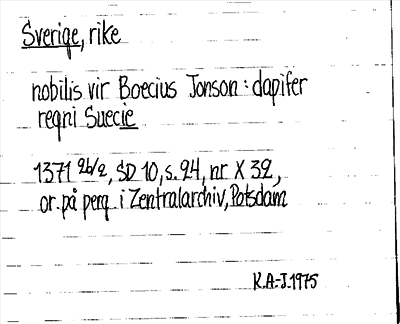 Sverige, rike
nobilis vir Boecius Jonson : dapifer
regni Suecie
1371 26/2, SD 10, s. 24, nr X 32,
or. på perg. i Zentralarchiv, Potsdam
K.A-J. 1975